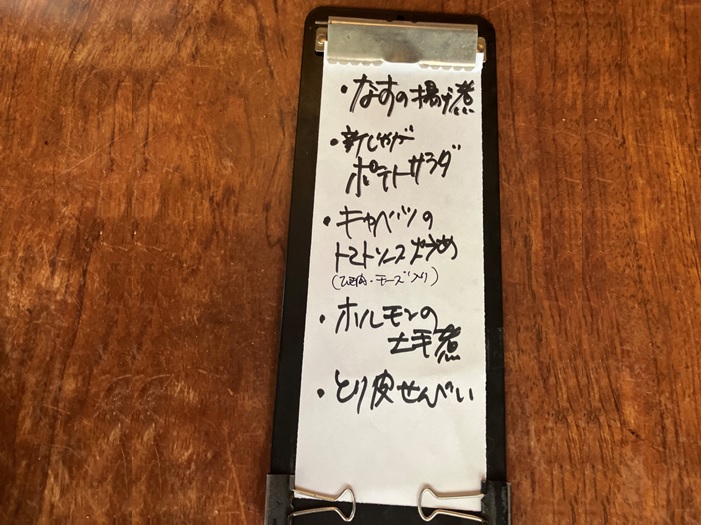 ・なすの揚げ煮
・新じゃが
ポテトサラダ
・キャベツの
トマトソース炒め
(ひき肉・チーズ入り)
・ホルモンの
土手煮
・とり皮せんべい